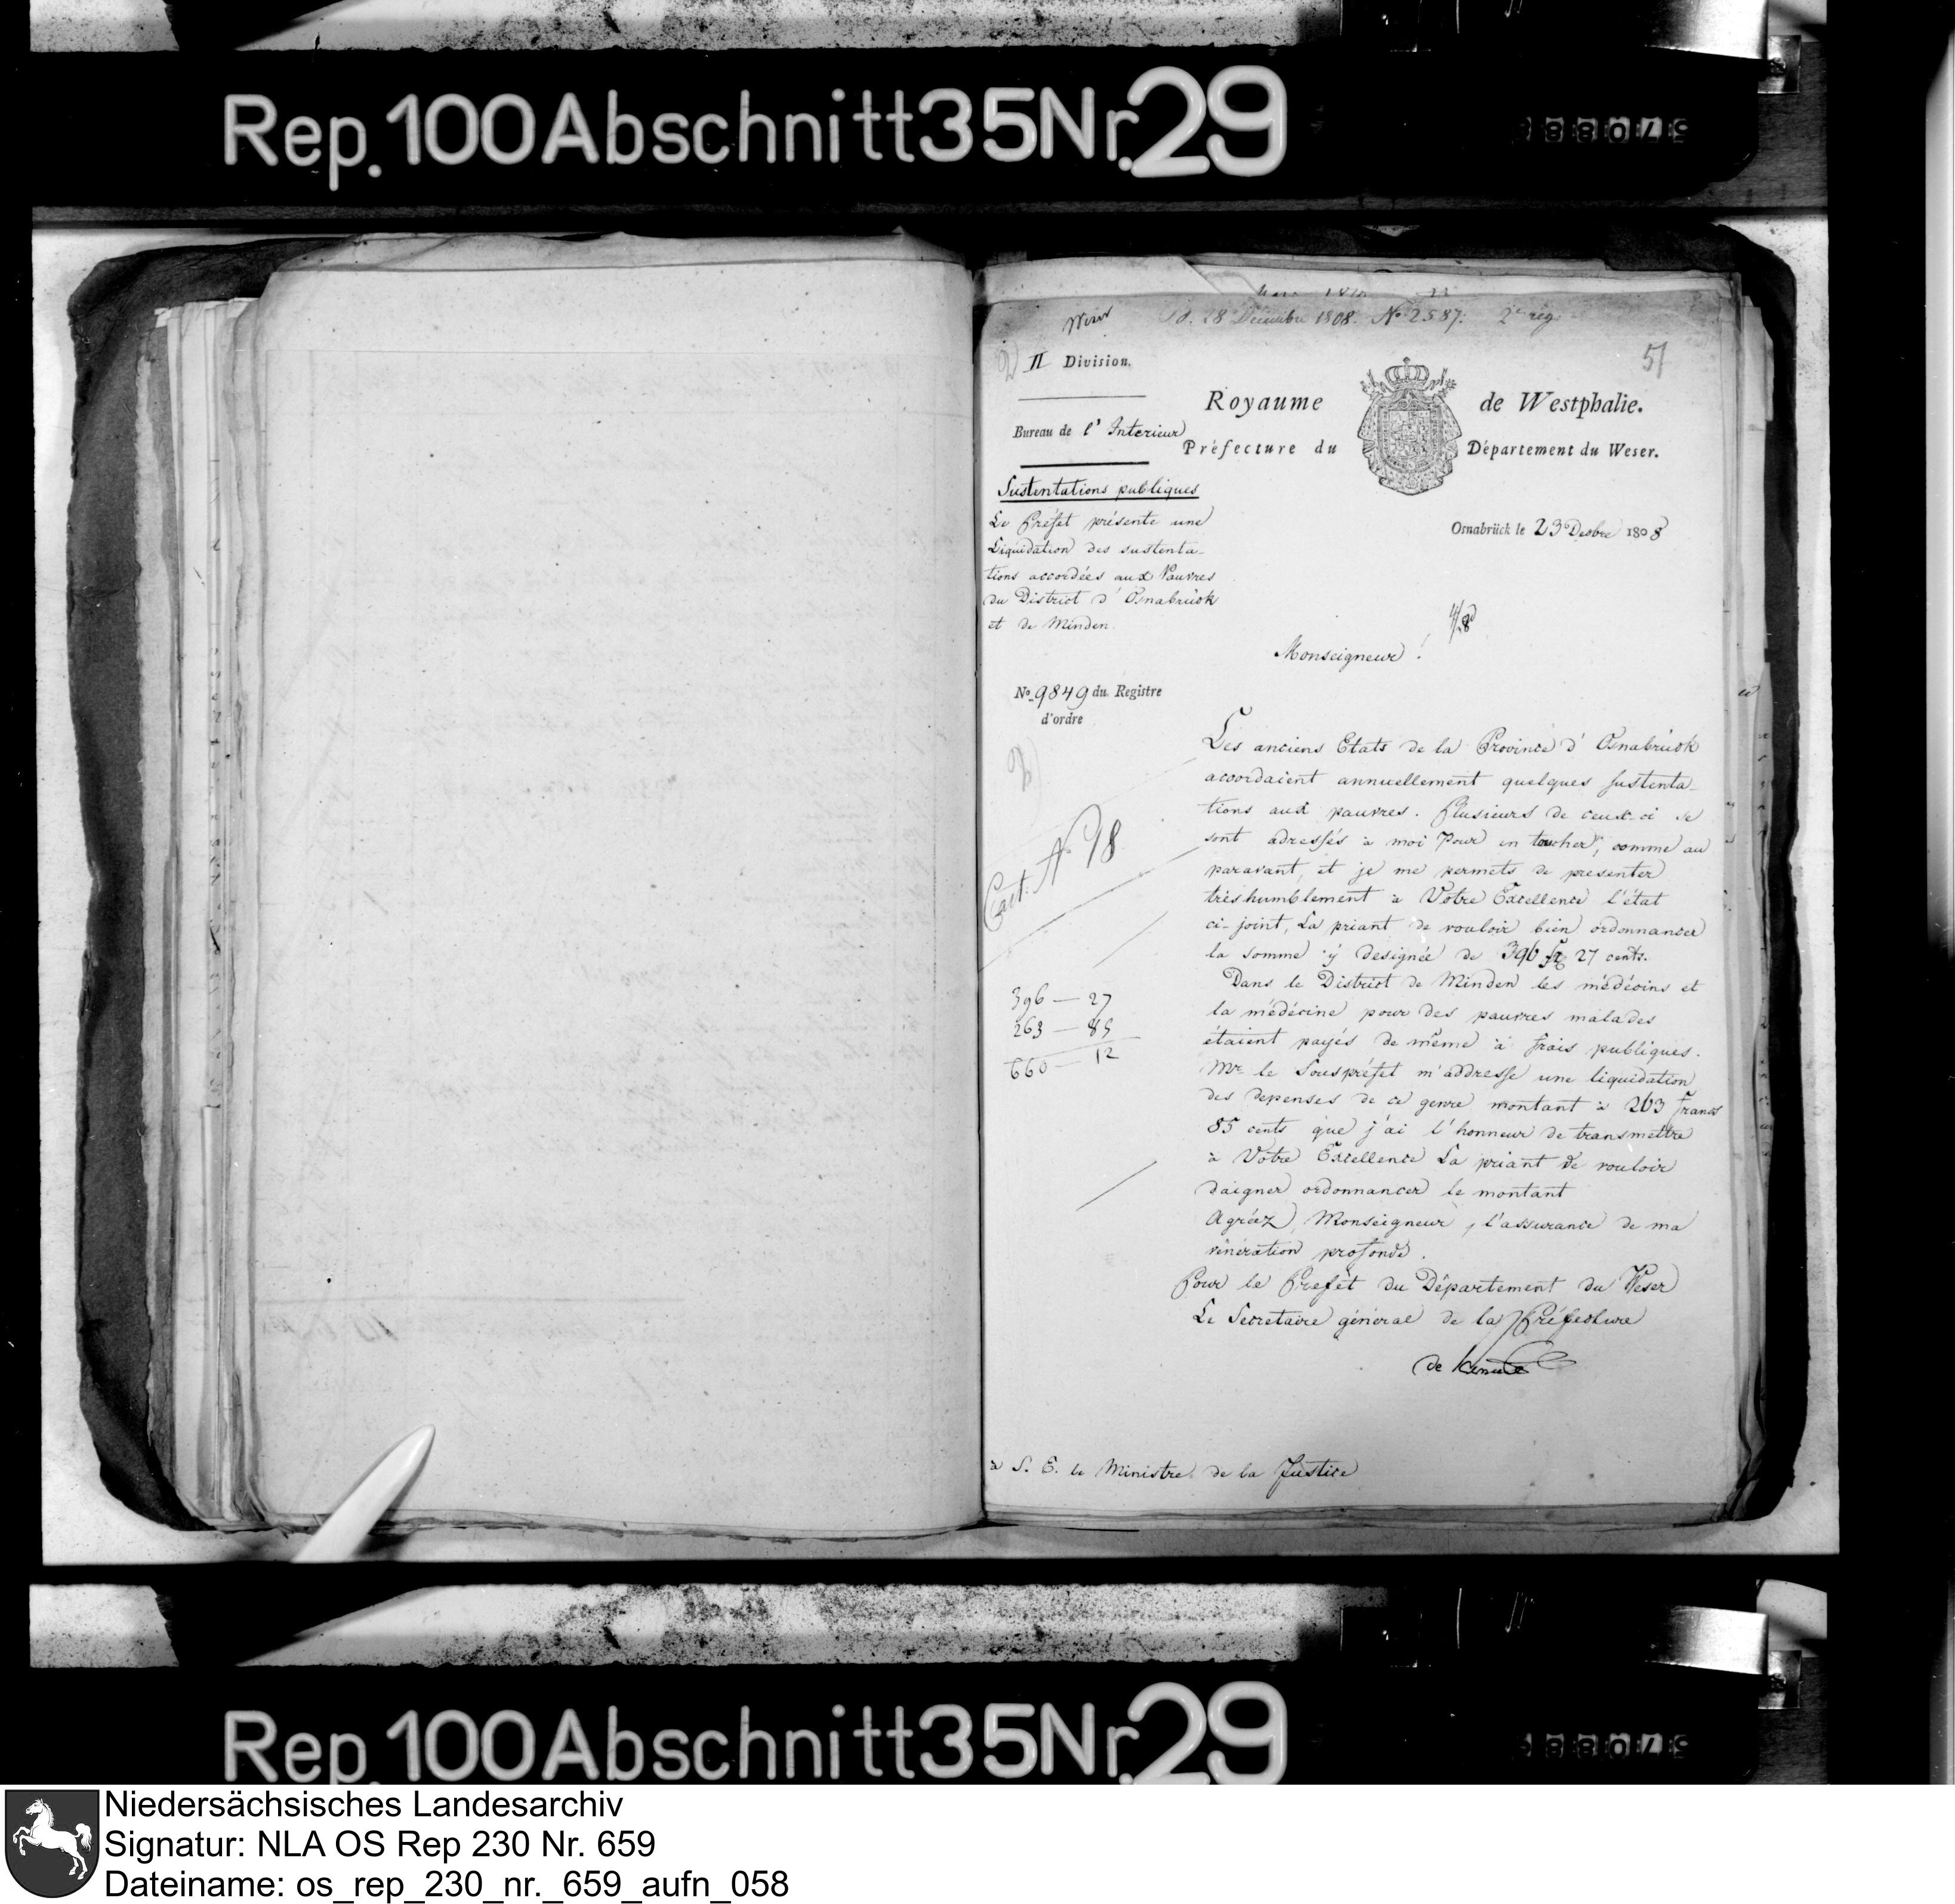 Rep. 100 Abschnitt 35 Nr. 29
Weser
d. 28 Decembre 1808. No 2587: 2e reg
51
II Division.
Royaume de Westphalie.
Bureau de l' Interieur
Préfecture du Département du Weser.
Sustentations publiques
Le Préfet présente une
Liquidation des sustenta-
tions accordées aux Pauvres
du District d' Osnabrück
et de Minden.
Osnabrück le 23 Decbre 1808
Monseigneur !
No. 9849 du Registre
d'ordre
Les anciens Etats de la Province d' Osnabrück
accordaient annuellement quelques sustenta-
tions aux pauvres. Plusieurs de ceux-ci se
sont adressés à moi Pour en toucher, comme au
paravant, et je me permets de presenter
trèshumblement à Votre Excellence l'état
ci-joint, La priant de vouloir bien ordonnancer
la somme y designée de 396 fr 27 cents.
Dans le District de Minden les médécins et
la médécine pour des pauvres malades
étaient payés de même à frais publiques.
Mr le Souspréfet m'addresse une liquidation
des depenses de ce genre montant à 263 francs
85 cents que j'ai l'honneur de transmettre
à Votre Excellence La priant de vouloir
daigner ordonnancer le montant
Agréez Monseigneur, l'assurance de ma
vénération profonde.
Pour le Prefét du Département du Weser
Le Secretaire général de la Préfecture
de
Cart. No 18
396 — 27
263 — 85
660 — 12
à S. E. le Ministre de la Justice
Rep. 100 Abschnitt 35 Nr. 29
Niedersächsisches Landesarchiv
Signatur: NLA OS Rep 230 Nr. 659
Dateiname: os_rep_230_nr._659_aufn_058